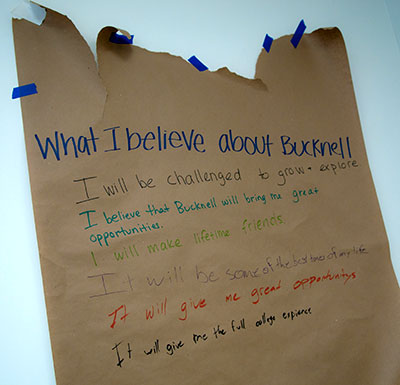 What I believe about Bucknell
I will be challenged to grow + explore
I believe that Bucknell will bring me great
opportunities.
I will make lifetime friends
It will be some of the best times of my life
It will give me great opportunitys
It will give me the full college expience